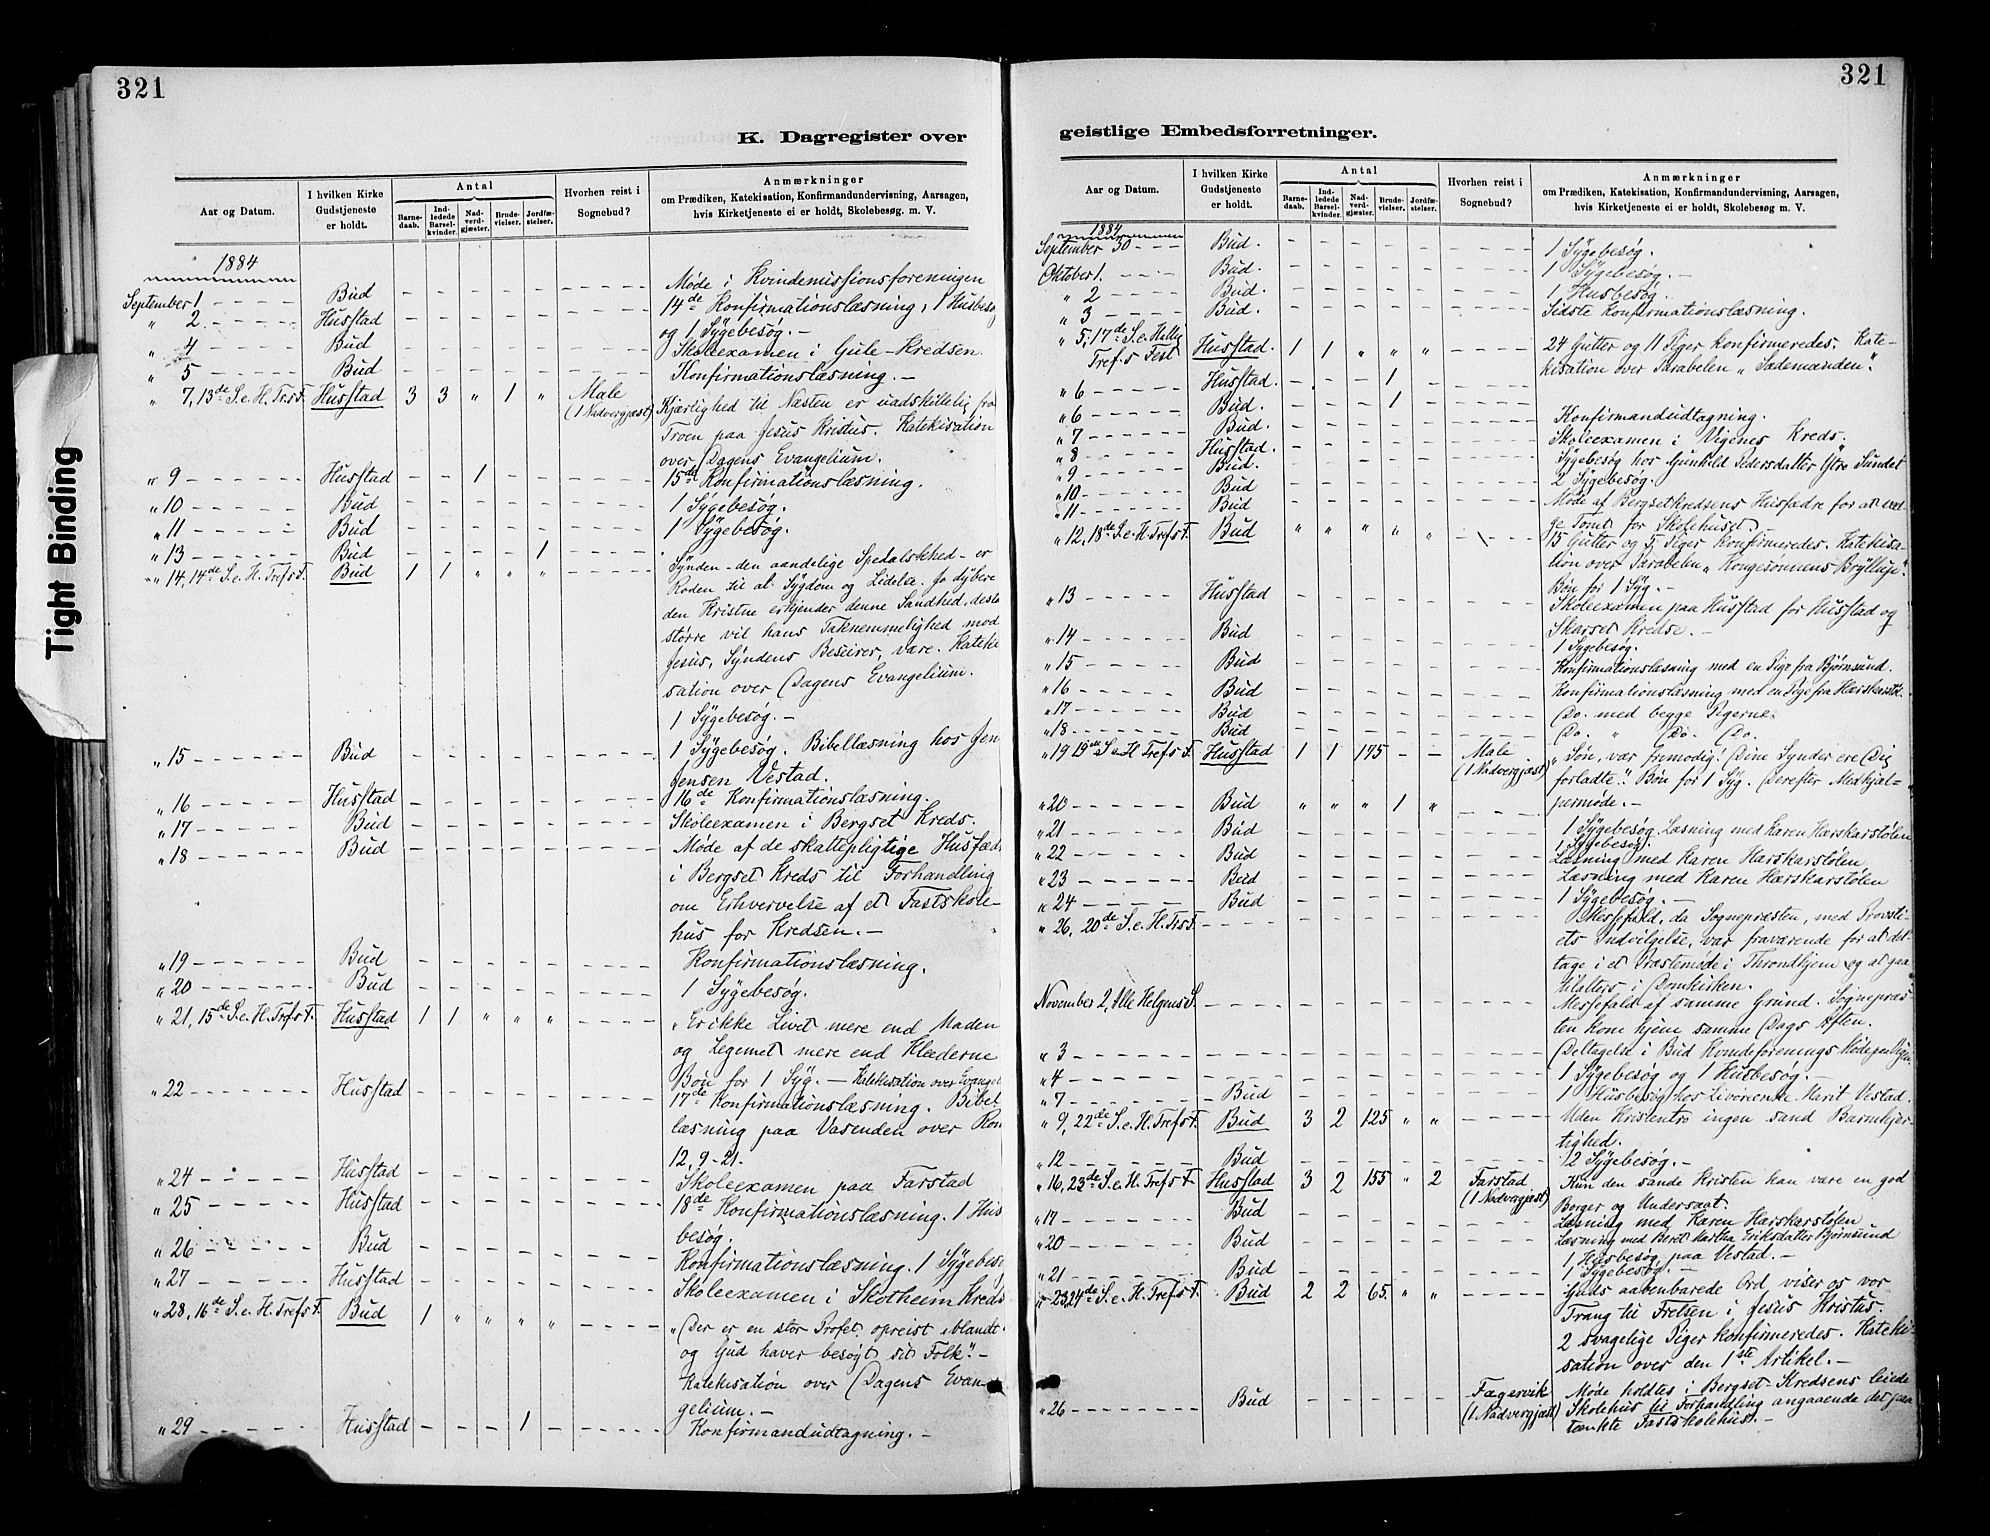 321
K. Dagregister over
Aar og Datum.
I hvilken Kirke
Gudstjeneste
er holdt.
Antal
Barne-
daab.
Ind-
ledede
Barsel-
kvinder.
Nad-
verd-
gjæster.
Brude-
vielser.
Jordfæ-
stelser.
Hvorhen reist i
Sognebud?
Anmærkninger
om Prædiken, Katekisation, Konfirmandundervisning, Aarsagen,
hvis Kirketjeneste ei er holdt, Skolebesøg m. V.
1884
Møde i Kvindemissionsforeningen
September 1 Bud
14de Konfirmationslæsning, 1 Husbesøg
" 2 Husstad
og 1 Sygebesøg. –
" 4 Bud
Skoleexamen i Gule-Kredsen
" 5 Bud
Konfirmationslæsning. –
" 7, 13de S. e. H. Tref. Husstad 3 3 " 1 " Male
(1 Nadvergjæst) Kjærlighed til Næsten er uadskillelig fra
Troen paa Jesus Kristus. Katekisation
over Dagens Evangelium.
" 9 Husstad 1 15de Konfirmationslæsning.
" 10 Bud 1 Sygebesøg.
" 11 Bud 1 Sygebesøg.
" 13 Bud 1
" 14, 14de S. e. H. Tref s F. Bud 1 1 " " " Synden – den aandelige Spedalskhed – er
Roden til al Sygdom og Lidelse. jo dybere
den Kristne erkjender denne Sandhed, desto
større vil hans Taknemmelighed mod
Jesus, Syndens Beseirer, være. Kateki
sation over Dagens Evangelium.
1 Sygebesøg. –
" 15 Bud 1 Sygebesøg. Bibellæsning hos Jen
Jensen Vestad.
" 16 Husstad 16de Konfirmationslæsning.
" 17 Bud Skoleexamen i Bergset Kreds.
" 18 Bud Møde af de skattepligtige Husfæd
i Bergset Kreds til Forhandling
om Erhvervelse af et Fastskole-
hus for Kredsen. –
" 19 Bud Konfirmationslæsning.
" 20 Bud 1 Sygebesøg.
" 21, 15de S. e. H. Tref s F. Husstad 1 1 " " " "Er ikke Livet mere end Maden
og Legemet mere end Klæderne
Bøn for 1 Syg. – Katekisation over Evangel
" 22 Husstad 17de Konfirmationslæsning. Bibel
læsning paa Vasenden over Rom
12, 9-21.
" 24 Husstad Skoleexamen paa Farstad
" 25 Husstad 18de Konfirmationslæsning. 1 Hus
besøg.
" 26 Bud Konfirmationslæsning. 1 Sygebesø
" 27 Husstad Skoleexamen i Skotheim Kreds
" 28, 16de S. e. H. Tref s F. Bud 1 " " " " "Der er en stor Profet opreist iblandt
og Gud haver besøgt sit Folk". –
Katekisation over Dagens Evan-
gelium. –
" 29 Husstad 1 Konfirmandudtagning. –
Tight Binding
321
geistlige Embedsforretninger.
Aar og Datum.
I hvilken Kirke
Gudstjeneste
er holdt.
Antal
Barne-
daab.
Ind-
ledede
Barsel-
kvinder.
Nad-
verd-
gjæster.
Brude-
vielser.
Jordfæ-
stelser.
Hvorhen reist i
Sognebud?
Anmærkninger
om Prædiken, Katekisation, Konfirmandundervisning, Aarsagen,
hvis Kirketjeneste ei er holdt, Skolebesøg m. V.
1884
September 30 Bud. 1 Sygebesøg.
Oktober 1. Bud. 1 Sygebesøg. –
" 2 Bud. 1 Husbesøg.
" 3 Bud. Sidste Konfirmationslæsning.
" 5, 17de S. e. Hellig
Tref. s Fest Husstad. 1 1 " " " 24 Gutter og 11 Piger konfirmeredes. Kate-
kisation over Parabelen „Sædemanden".
" 6 Husstad. 1
" 6 Bud. 1 Konfirmandudtagning.
" 7 Bud. Skoleexamen i Vigenes Kreds.
" 8 Husstad.
" 9 Bud. Sygebesøg hos Gunhild Pedersdatter Ytre Sundet
" 10 Bud 2 Sygebesøg.
" 11 Bud Møde af Bergsetkredsens Husfædre for at væl-
ge Tomt for Skolehuset –
" 12, 18de S. e. H. Tref s F. Bud " " " " " 15 Gutter og 5 Piger konfirmeredes. Katekisa-
tion over Parabelen „Kongesønnens Bryllup".
Bøn for 1 Syg. –
" 13 Husstad Skoleexamen paa Husstad for Husstad og
Skarset Kredse. –
" 14 Bud 1 Sygebesøg.
" 15 Bud Konfirmationslæsning med en Pige fra Bjørnsund.
" 16 Bud Konfirmationslæsning med en Pige fra Harskarstøl.
" 17 Bud Do. med begge Pigerne.
" 18 Bud Do. " Do. Do.
" 19 19de S. e. H. Tref s F. Husstad 1 1 175 Male
(1 Nadvergjæst) „Søn, vær frimodig! Dine Synder ere Dig
forladte". Bøn for 1 Syg. Derefter Medhjæl-
permøde. –
" 20 Bud " " " 1 "
" 21 Bud 1 Sygebesøg. Læsning med Karen Harskarstølen
1 Sygebesøg.
" 22 Bud Læsning med Karen Harskarstølen
" 23 Bud Læsning med Karen Harskarstølen
" 24 Bud 1 Sygebesøg. –
" 26, 20de S. e. H. Tr s F. Messefald, da Sognepræsten, med Provsti-
ets Indvilgelse, var fraværende for at del-
tage i et Præstemøde i Throndhjem og at gaa
tilalters i Domkirken.
November 2, Alle Helgens S. Messefald af samme Grund. Sognepræs-
ten kom hjem samme Dags Aften.
" 3 Deltagelse i Bud Kvindeforenings Møde paa
" 4 1 Sygebesøg og 1 Husbesøg. –
" 7 Bud 1 Husbesøg hos Livøreenke Marit Vestad.
" 9, 22de S. e. H. Tref s F. Bud 3 2 125 " " Uden Kristentro ingen sand Barmhjer-
tighed.
" 12 Bud 2 Sygebesøg. –
" 16, 23de S. e. H. Tref s F. Husstad 3 2 155 " 2 Farstad
(1 Nadvergjæst) Kun den sande Kristen kan være en god
Borger og Undersaat.
" 17 Bud Læsning med Karen Harskarstølen
" 20 Bud Læsning med Beret Martha Eriksdatter Bjørnsund
1 Husbesøg paa Vestad. –
" 21 Bud 1 Sygebesøg. –
" 23 24de S. e. H. Tref s F. Bud 2 2 65 " " Guds aabenbarede Ord viser os vor
Trang til Frelsen i Jesus Kristus.
2 svagelige Piger konfirmeredes. Kateki-
sation over den 1ste Artikel. –
" 26 Bud Fægervik
(1 Nadvergjæst) Møde holdtes i Bergset-Kredsens leiede
Skolehus til Forhandling angaaende det paa
tænkte Fastskolehus. –